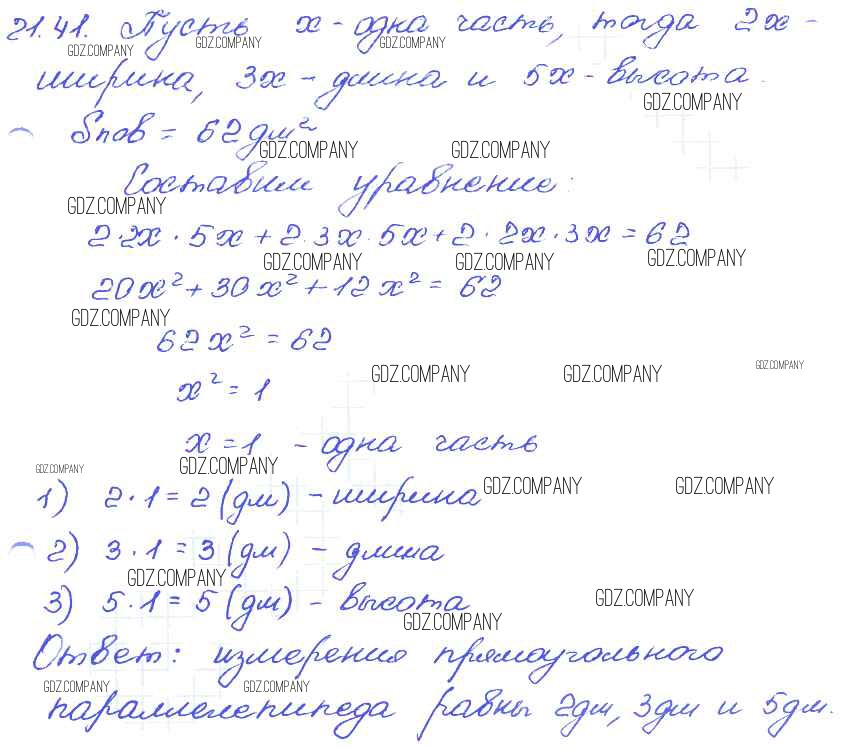 21.41. Пусть x - одна часть, тогда 2x -
GDZ.COMPANY GDZ.COMPANY GDZ.COMPANY
ширина, 3x - длина и 5x - высота.
GDZ.COMPANY
Sпов = 62 дм²
GDZ.COMPANY GDZ.COMPANY
Составим уравнение:
GDZ.COMPANY
2·2x · 5x + 2·3x·5x + 2 · 2x · 3x = 62
GDZ.COMPANY GDZ.COMPANY GDZ.COMPANY
20x² + 30x² + 12x² = 62
GDZ.COMPANY
62x² = 62
GDZ.COMPANY GDZ.COMPANY GDZ.COMPANY
x² = 1
x = 1 - одна часть
GDZ.COMPANY GDZ.COMPANY
1) 2 · 1 = 2 (дм) - ширина
GDZ.COMPANY GDZ.COMPANY
2) 3 · 1 = 3 (дм) - длина
GDZ.COMPANY
3) 5 · 1 = 5 (дм) - высота
GDZ.COMPANY
GDZ.COMPANY
Ответ: измерения прямоугольного
GDZ.COMPANY GDZ.COMPANY
параллелепипеда равны 2дм, 3дм и 5дм.